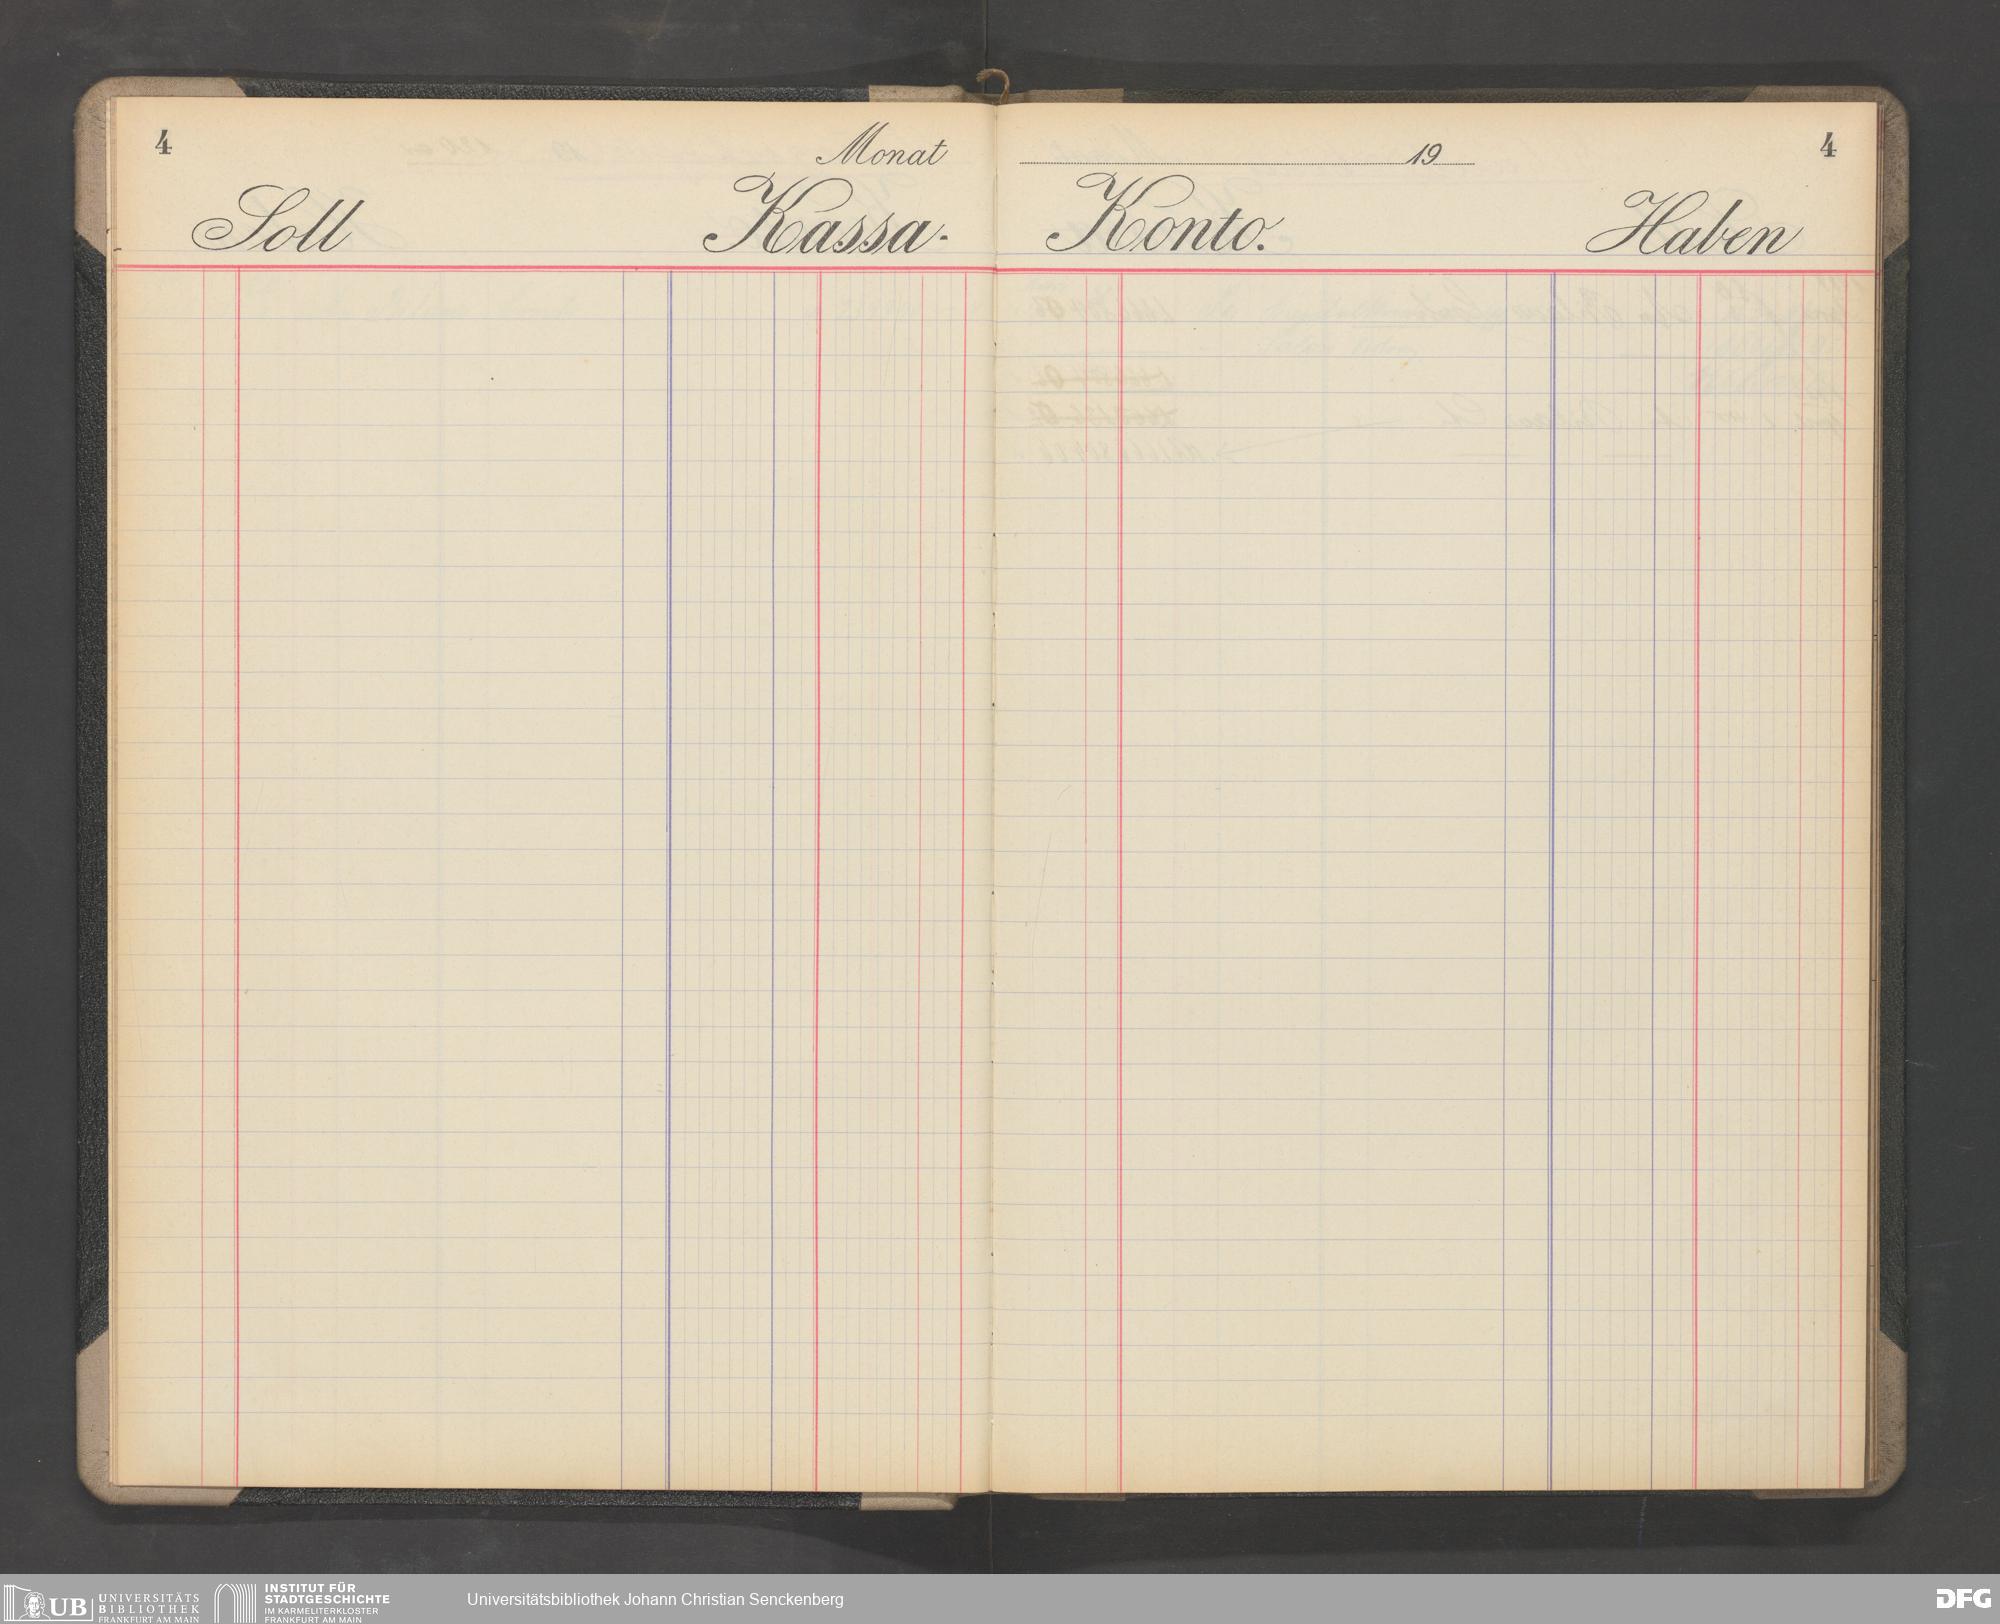 4 Monat 19 4
Soll Kassa- Konto. Haben
UB UNIVERSITÄTS
BIBLIOTHEK
FRANKFURT AM MAIN
INSTITUT FÜR
STADTGESCHICHTE
IM KARMELITERKLOSTER
FRANKFURT AM MAIN
Universitätsbibliothek Johann Christian Senckenberg
DFG